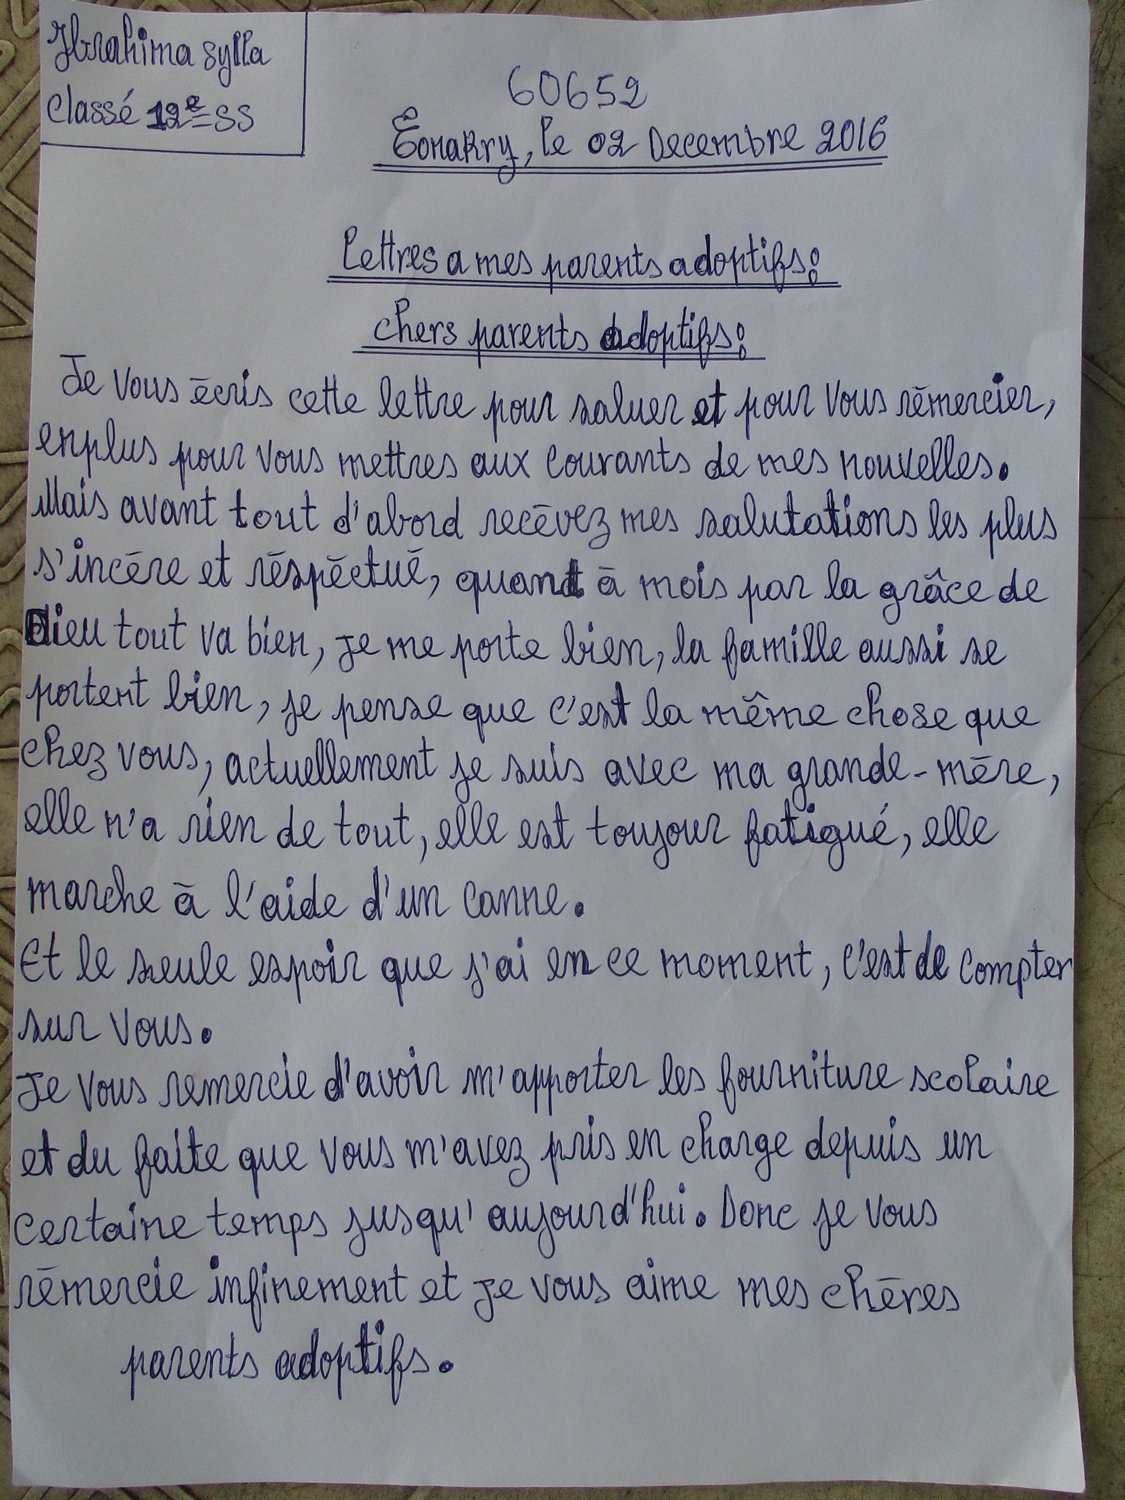 Ibrahima Sylla
Classé 12e SS
60652
Conakry, le 02 Decembre 2016
Lettres a mes parents adoptifs:
Chers parents adoptifs:
Je vous écris cette lettre pour saluer et pour vous rémercier,
enplus pour vous mettres aux courants de mes nouvelles.
Mais avant tout d'abord recévez mes salutations les plus
s'incére et réspéctué, quant à mois par la grâce de
Dieu tout va bien, je me porte bien, la famille aussi se
portent bien, je pense que c'est la même chose que
chez vous, actuellement je suis avec ma grande-mére,
elle n'a rien de tout, elle est toujour fatigué, elle
marche à l'aide d'un canne.
Et le seule espoir que j'ai en ce moment, c'est de compter
sur vous.
Je vous remercie d'avoir m'apporter les fourniture scolaire
et du faite que vous m'avez pris en charge depuis un
certaine temps jusqu' aujourd'hui. Donc je vous
rémercie infinement et je vous aime mes chères
parents adoptifs.